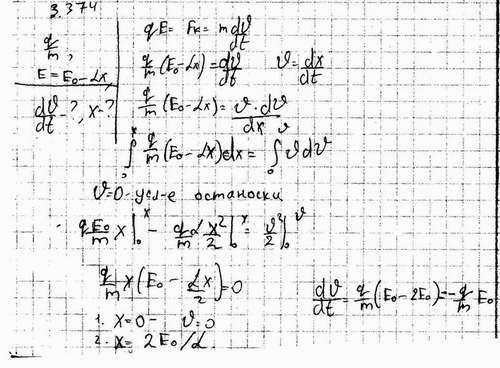 3.374
q/m,
E = E₀ - αx,
dϑ/dt - ?, x - ?
qE = Fк = m dϑ/dt
q/m (E₀ - αx) = dϑ/dt ϑ = dx/dt
q/m (E₀ - αx) = ϑ·dϑ/dx
∫₀ˣ q/m (E₀ - αx) dx = ∫₀^ϑ ϑdϑ
ϑ = 0 - усл-е остановки
qE₀/m x |₀ˣ - q/m α x²/2 |₀ˣ = ϑ²/2 |₀^ϑ
q/m x (E₀ - αx/2) = 0
1. x = 0 - ϑ = 0
2. x = 2E₀/α.
dϑ/dt = q/m (E₀ - 2E₀) = - q/m E₀